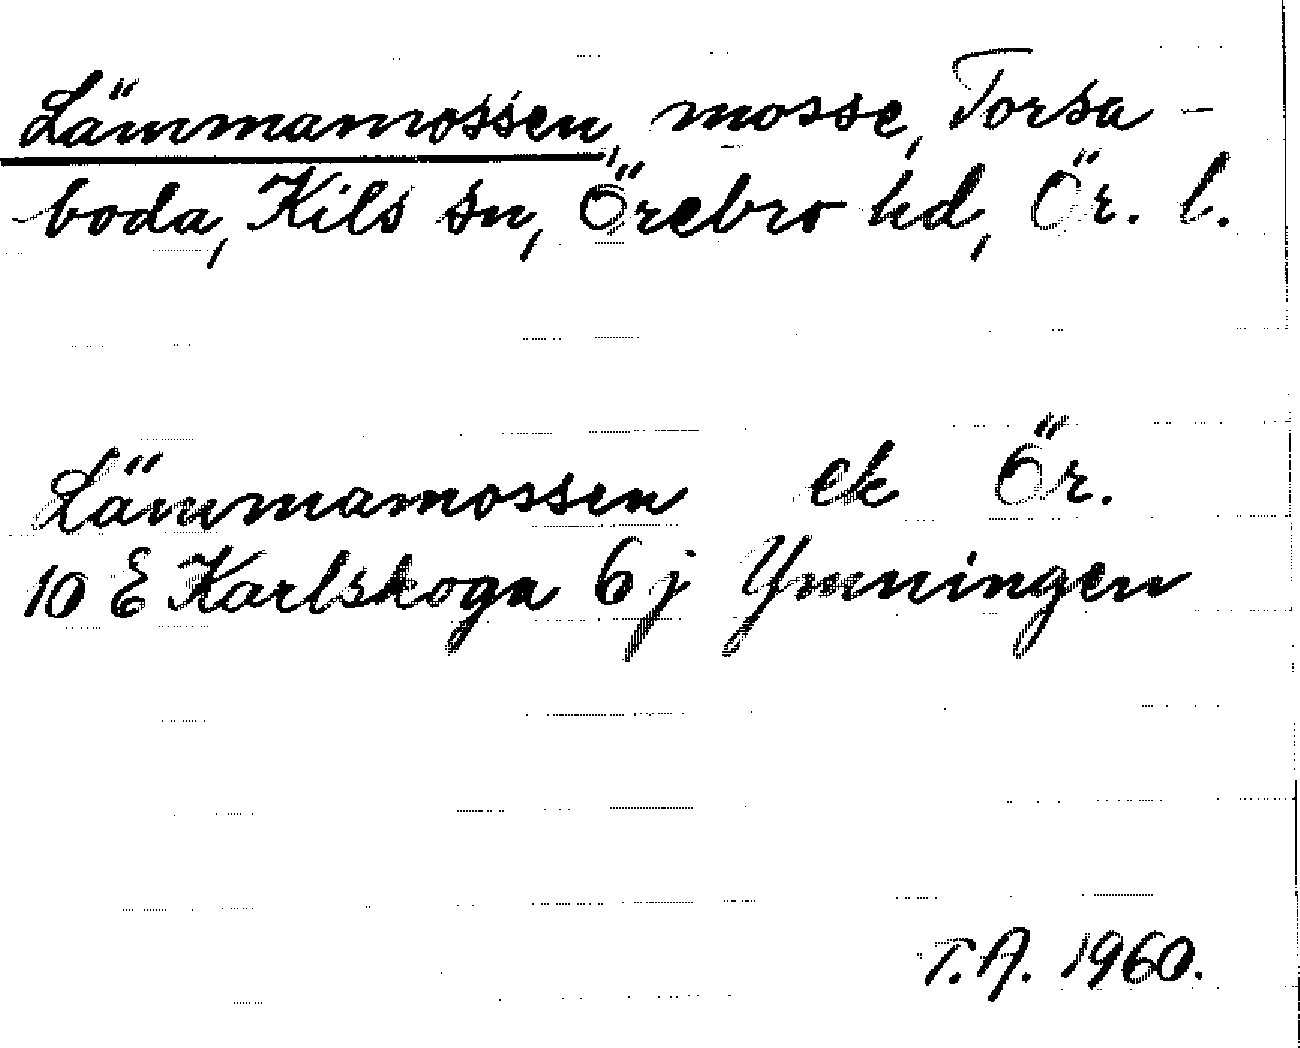 Lämmamossen, mosse, Torsa-
boda, Kils sn, Örebro hd, Ör. l.
Lämmamossen ek Ör.
10 E Karlskoga 6 j Ymningen
T.A. 1960.